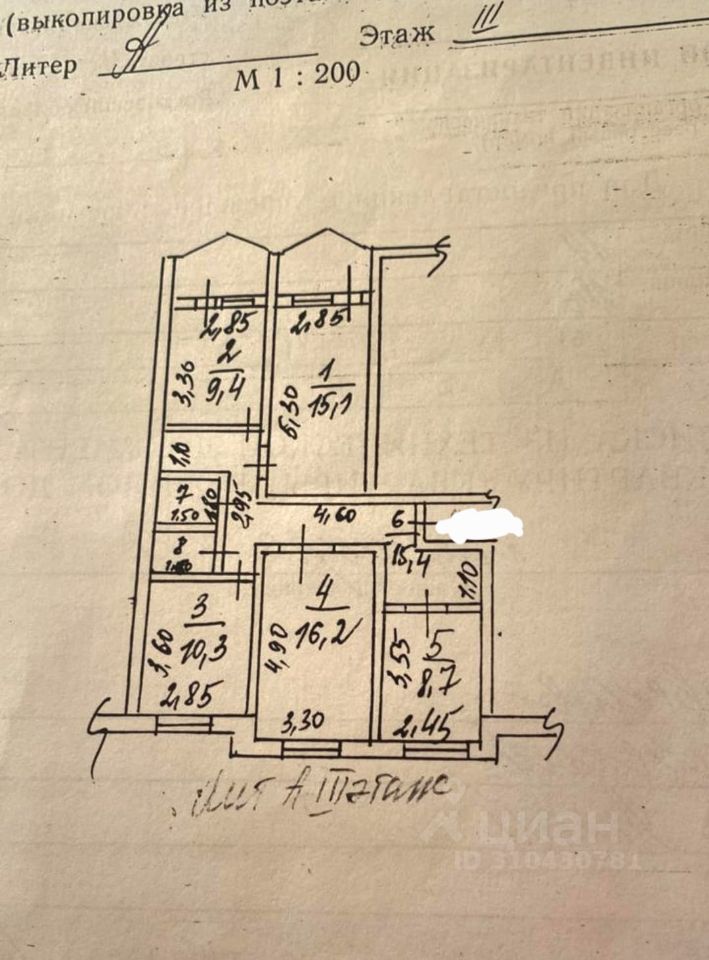 (выкопировка из
Литер A Этаж III
М 1 : 200
2,85 2,85
2
9,4
3,30
1
15,1
5,30
1,10
7
1.50
1.80
2,95
4,60
6
15,4
8
1,10
3
10,3
3,60
2,85
4
16,2
4,90
3,30
5
8,7
3,55
2,45
Лит А III этаж
циан
ID 310430781